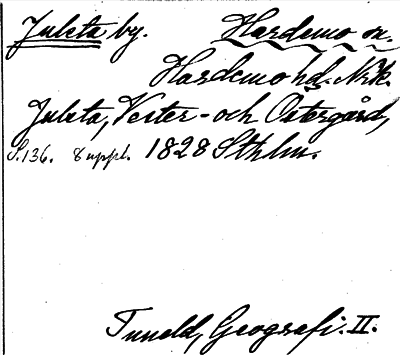 Juleta by. Hardemo sn.
Hardemo hd. Nrk.
Juleta, Vester- och Östergård,
S.136. 8 uppl. 1828 Sthlm.
Tuneld, Geografi. II.